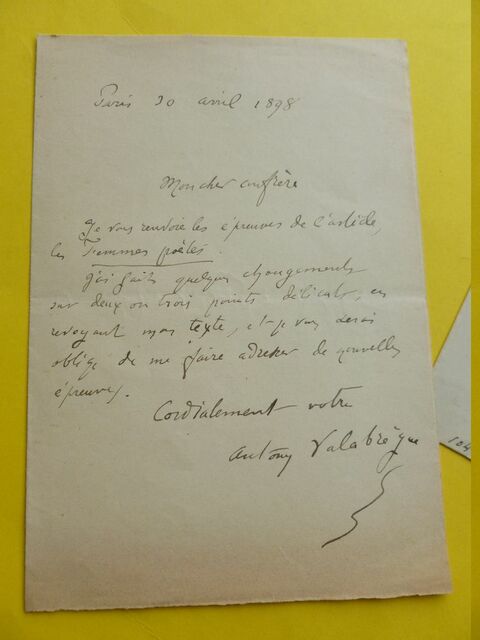 Paris 30 avril 1898
Mon cher confrère
Je vous renvoie les épreuves de l'article,
les Femmes poètes.
J'ai faits quelques changements
sur deux ou trois points délicats, en
revoyant mon texte, et je vous serais
obligé de me faire adresser de nouvelles
épreuves.
Cordialement votre
Antony Valabrègue
104